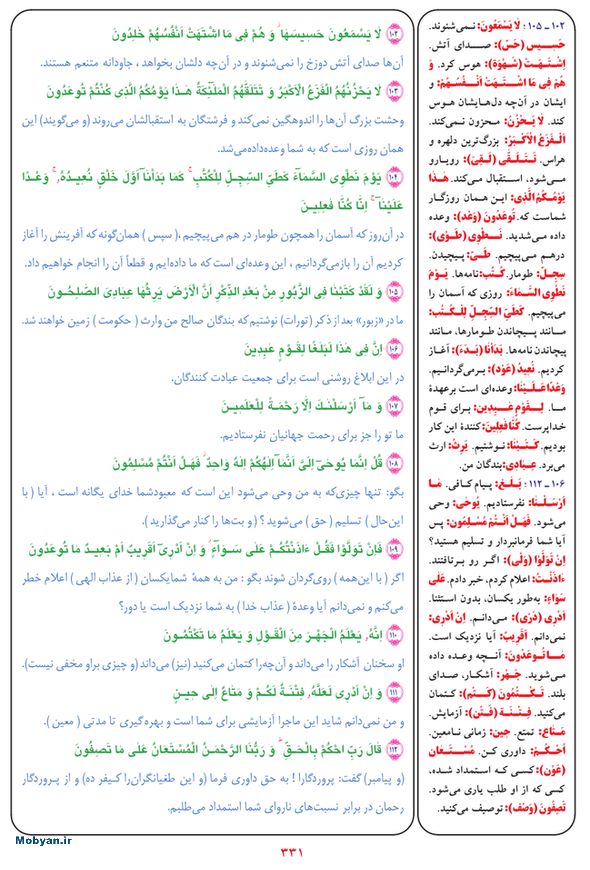 ۱۰۲ ـ ۱۰۵ : لا یَسْمَعُونَ: نـمی‌شنوند.
حَسِیس (حَسّ): صـــدای آتش.
اِشْتَهَتْ (شَهْوَة): هوس کرد. وَ
هُمْ فِی مَا اشْتَهَتْ اَنْـفُسُهُمْ: و
ایشان در آن‌چه دل‌هایشان هوس
کند. لا یَحْزُنُ: محزون نـمی‌کند.
اَلْفَزَعُ الْاَکْبَرُ: بزرگ‌ترین دلهره و
هراس. تَتَلَقّٰی (لَقِیَ): رویـارو
می‌شود، استقبال می‌کند. هٰـذا
یَوْمُکُمُ الَّذِی: این همان روزگار
شماست که. تُوعَدُونَ (وَعَدَ): وعده
داده می‌شدید. نَــطْوِی (طَوٰی):
درهم می‌پیچیم. طَیّ: پیچیدن.
سِجِلّ: طومار. کُتُب: نامه‌ها. یَـوْمَ
نَطْوِی السَّمٰاءَ: روزی که آسمان را
می‌پیچیم. کَطَیِّ السِّجِلِّ لِلْکُتُبِ:
مـانند پیچاندن طـومارها، مـانند
پیچاندن نامه‌ها. بَدَأْنا (بَدَءَ): آغـاز
کردیم. نُعِیدُ (عَوَدَ): بـرمی‌گردانیم.
وَعْداً عَلَیْنا: وعده‌ای است برعهدهٔ
مـا. لِـقَوْمٍ عـٰابِدِینَ: بـرای قـوم
خداپرست. کُنّٰا فٰاعِلِینَ: کنندهٔ این کار
بودیم. کَــتَبْنا: نـوشتیم. یَرِثُ: ارث
می‌برد. عِبادِی: بندگان من.
۱۰۶ ـ ۱۱۲ : بَـلٰغ: پیـام کـافی. مٰـا
اَرْسَـلْنا: نفرستادیم. یُوحٰی: وحی
می‌شود. فَهَلْ اَنْـتُمْ مُسْلِمُونَ: پس
آیا شما فرمانبردار و تسلیم هستید؟
اِنْ تَوَلَّوْا (وَلّٰی): اگـر رو بـرتافتند.
ءٰاذَنْتُ: اعلام کردم، خبر دادم. عَلٰی
سَوٰاءٍ: به‌طور یکسان، بدون استثنا.
اَدْرِی (دَرٰی): مـی‌دانـم. اِنْ اَدْرِی:
نمی‌دانم. اَقَرِیبٌ: آیا نزدیک است.
مٰـا تُوعَدُونَ: آنـچه وعـده داده
می‌شوید. جَـهْر: آشکـار، صـدای
بلند. تَـکْـتُمُونَ (کَـتَمَ): کـتمان
می‌کنید. فِـتْنَة (فَتَنَ): آزمـایش.
مَتٰاع: تمتع. حِین: زمانی نامعین.
اُحْکُمْ: داوری کـن. مُسْـتَعٰان
(عَوْن): کسـی کـه استمداد شده،
کسی که از او طلب یاری می‌شود.
تَصِفُونَ (وَصَفَ): توصیف می‌کنید.
۱۰۲ لَا یَسْمَعُونَ حَسِیسَهَا ۖ وَ هُمْ فِی مَا اشْتَهَتْ اَنْفُسُهُمْ خٰلِدُونَ
آن‌ها صدای آتش دوزخ را نمی‌شنوند و در آن‌چه دلشان بخواهد ، جاودانه متنعم هستند.
۱۰۳ لَا یَحْزُنُهُمُ الْفَزَعُ الْاَکْبَرُ وَ تَتَلَقّٰهُمُ الْمَلٰٓئِکَةُ هٰـذَا یَوْمُکُمُ الَّذِی کُنْتُمْ تُوعَدُونَ
وحشت بزرگ آن‌ها را اندوهگین نمی‌کند و فرشتگان به استقبالشان می‌روند (و می‌گویند) این
همان روزی است که به شما وعده‌داده‌می‌شد.
۱۰۴ یَوْمَ نَطْوِی السَّمَآءَ کَطَیِّ السِّجِلِّ لِلْکُتُبِ ۚ کَمَا بَدَأْنَآ اَوَّلَ خَلْقٍ نُعِیدُهُ ۚ وَعْدًا
عَلَیْنَآ ۚ اِنَّا کُنَّا فٰعِلِینَ
در آن‌روز که آسمان را همچون طومار در هم می‌پیچیم ، ( سپس ) همان‌گونه که آفرینش را آغاز
کردیم آن را بازمی‌گردانیم ، این وعده‌ای است که ما داده‌ایم و قطعاً آن را انجام خواهیم داد.
۱۰۵ وَ لَقَدْ کَتَبْنَا فِی الزَّبُورِ مِنْ بَعْدِ الذِّکْرِ اَنَّ الْاَرْضَ یَرِثُهَا عِبَادِیَ الصّٰلِحُونَ
ما در «زبور» بعد از ذکر (تورات) نوشتیم که بندگان صالح من وارث ( حکومت ) زمین خواهند شد.
۱۰۶ اِنَّ فِی هٰذَا لَبَلٰغًا لِقَوْمٍ عٰبِدِینَ
در این ابلاغ روشنی است برای جمعیت عبادت کنندگان.
۱۰۷ وَ مَآ اَرْسَلْنٰکَ اِلَّا رَحْمَةً لِلْعٰلَمِینَ
ما تو را جز برای رحمت جهانیان نفرستادیم.
۱۰۸ قُلْ اِنَّمَا یُوحٰٓی اِلَیَّ اَنَّمَآ اِلٰهُکُمْ اِلٰهٌ وَاحِدٌ ۖ فَهَلْ اَنْتُمْ مُسْلِمُونَ
بگو: تنها چیزی‌که به من وحی می‌شود این است که معبودشما خدای یگانه است ، آیا ( با
این‌حال ) تسلیم ( حق ) می‌شوید ؟ ( و بت‌ها را کنار می‌گذارید ).
۱۰۹ فَاِنْ تَوَلَّوْا فَقُلْ ءَاذَنْتُکُمْ عَلٰی سَوَآءٍ ۖ وَ اِنْ اَدْرِیٓ اَقَرِیبٌ اَمْ بَعِیدٌ مَا تُوعَدُونَ
اگر ( با این‌همه ) روی‌گردان شوند بگو : من به همهٔ شمایکسان ( از عذاب الهی ) اعلام خطر
می‌کنم و نمی‌دانم آیا وعدهٔ ( عذاب خدا ) به شما نزدیک است یا دور؟
۱۱۰ اِنَّهُ یَعْلَمُ الْجَهْرَ مِنَ الْقَوْلِ وَ یَعْلَمُ مَا تَکْتُمُونَ
او سخنان آشکار را می‌داند و آن‌چه‌را کتمان می‌کنید (نیز) می‌داند (و چیزی براو مخفی نیست).
۱۱۱ وَ اِنْ اَدْرِی لَعَلَّهُ فِتْنَةٌ لَکُمْ وَ مَتَاعٌ اِلٰی حِینٍ
و من نمی‌دانم شاید این ماجرا آزمایشی برای شما است و بهره‌گیری تا مدتی ( معین ).
۱۱۲ قَالَ رَبِّ احْکُمْ بِالْحَقِّ ۗ وَ رَبُّنَا الرَّحْمٰنُ الْمُسْتَعَانُ عَلٰی مَا تَصِفُونَ
(و پیامبر) گفت: پروردگارا ! به حق داوری فرما (و این طغیانگران‌را کیفر ده) و از پروردگار
رحمان در برابر نسبت‌های ناروای شما استمداد می‌طلبم.
Mobyan.ir
۳۳۱